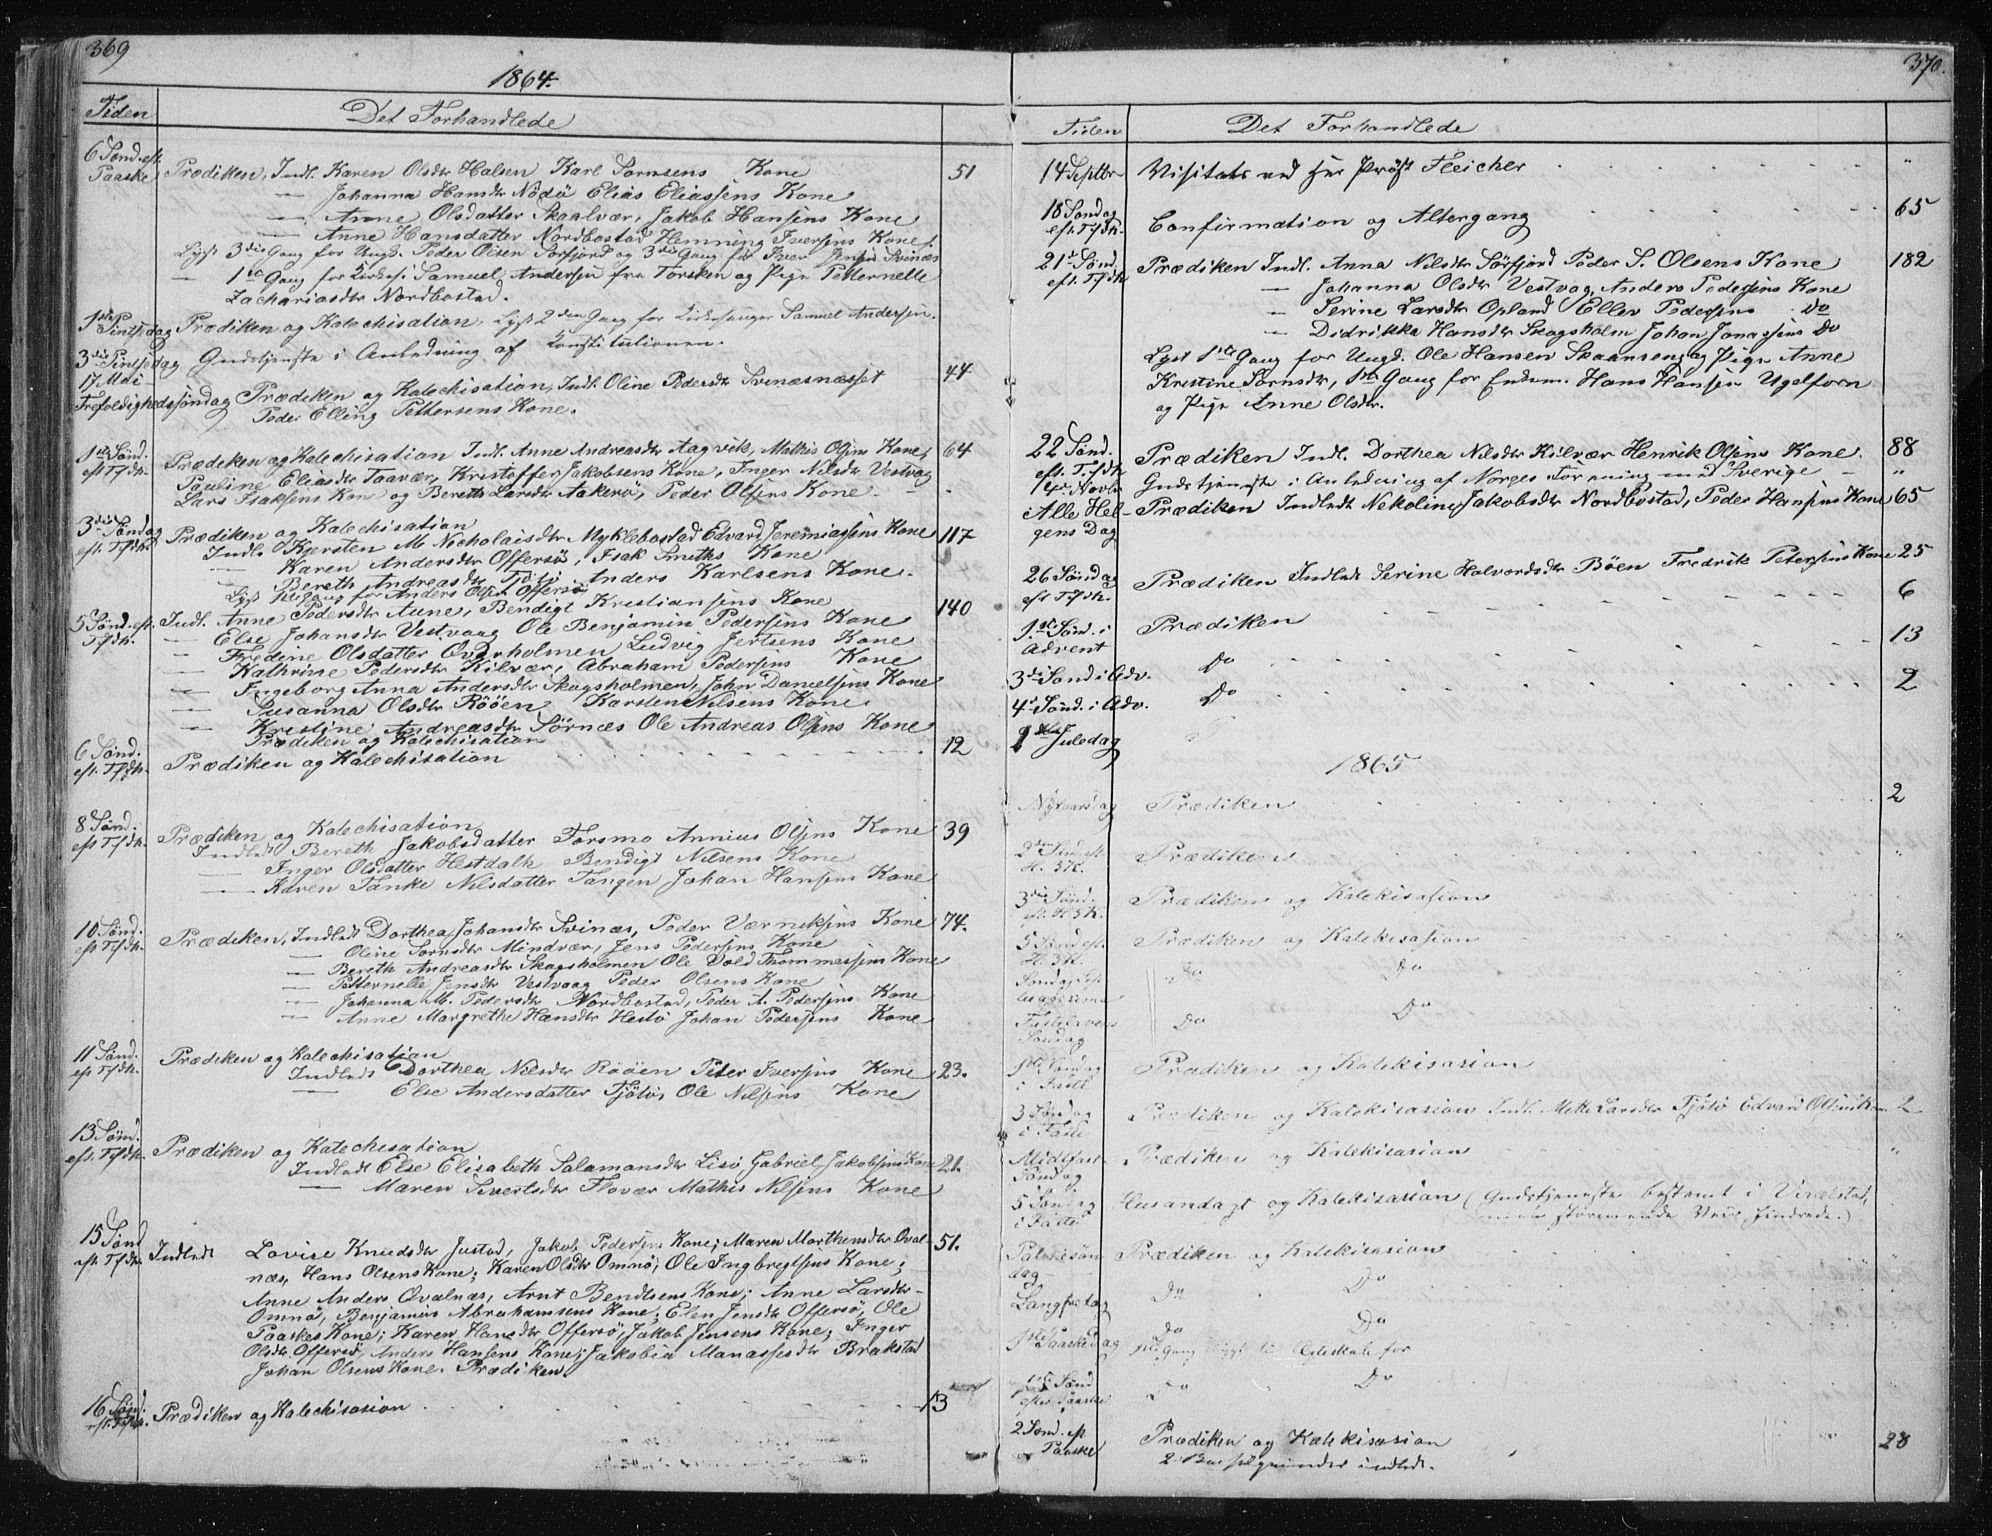 369
1864.
Tiden Det Forhandlede
6 Sønd. eft. Paaske Prædiken, Indl. Karen Olsdtr Halsen Karl Sørnsens Kone 51
— Johanna Hansdtr Nödö Elias Eliassens Kone
— Anne Olsdatter Skaalvær, Jakob Hansens Kone
— Anne Hansdatter Nordbostad Hemming Iversens Kone
Lyst 3die Gang for Ungk. Peder Olsen Sorfjord og 3die Gang for Iver Jensen Svinæs
— 1ste Gang for Kirkes. Samuel Andersen fra Torsken og Pige Petternelle
Zachariasdtr Nordbostad.
1ste Pintsdag Prædiken og Katechisation. Lyst 2den Gang for Kirkesanger Samuel Andersen.
3die Pintsedag 17 Mai Gudstjeneste i Anledning af Konstitutionen.
Trefoldighedssøndag Prædiken og Katechisation, Indl. Oline Pedersdtr Svinæsnæsset 44
Peder Elling Pettersens Kone.
1ste Sønd. eft. Tfdh. Prædiken og Katechisation Indl. Anne Andreasdtr Aagvik, Mathis Olsens Kone, 64
Pauline Eliasdtr Taavær, Kristoffer Jakobsens Kone, Inger Nilsdtr Vestvaag
Lars Isaksens Kone og Bereth Larsdtr Aakerø, Peder Olsens Kone.
3die Søndag eft. Tfdh. Prædiken og Katechisation
Indl. Kjersten M. Nicholaisdtr Myklebostad Edvard Jeremiassens Kone 117
— Karen Andersdtr Offersø, Isak Smiths Kone
— Bereth Andreasdtr Tjötö Anders Karlsens Kone.
Lyst 1ste Gang for Anders Olsen Offersø
5 Sønd. eft. Tfdh. Indl. Anne Pedersdtr Aune, Bendigt Kristiansens Kone 140
— Else Johansdtr Vestvaag Ole Benjamin Pedersens Kone
— Fredine Olsdatter Øvarholmen Ludvig Jertsens Kone
— Kathrine Pedersdtr Kilvær, Abraham Pedersens Kone
— Ingeborg Anna Andersdtr Skogsholmen, John Danielsens Kone
— Susanna Olsdtr Røöen Karsten Nilsens Kone
— Kristine Andreasdtr Sörnæs Ole Andreas Olsens Kone
Prædiken og Katechisation
6 Sønd. eft. Tfdh. Prædiken og Katechisation 12
8 Sønd. eft Tfdh. Prædiken og Katechisation
Indledt Bereth Jakobsdatter Forsmo Annius Olsens Kone 39
— Inger Olsdatter Hestdalh Bendigt Nilsens Kone
— Karen Tanke Nilsdatter Tangen Johan Hansens Kone
10 Sønd. eft Tfdh. Prædiken, Indledt Dorthea Johansdtr Svinæs, Peder Værniksens Kone 74.
— Oline Sörnsdtr Mindvær, Jens Pedersens Kone
— Bereth Andreasdtr Skogsholmen Ole Vold Thommassens Kone
— Petternelle Jensdtr Vestvaag Peder Olsens Kone
— Johanna M. Pedersdtr Nordbostad, Peder A. Pedersens Kone
— Anne Margrethe Hansdtr Hestö Johan Pedersens Kone
11 Sønd. ef Tfdh. Prædiken og Katechisation
Indledt Dorthea Nilsdtr Rööen Peter Iversens Kone 23.
— Else Andersdatter Tjötö, Ole Nilsens Kone
13 Sønd. eft. Tfdh. Prædiken og Katechisation
Indledt Else Elisabeth Salamonsdtr Lisö, Gabriel Jakobsens Kone 21.
— Maren Sivertsdtr Flovær Mathis Nilsens Kone
15 Sønd eft. Tfdh. Indledt Lovise Knudsdtr Justad, Jakob Pedersens Kone; Maren Morthensdtr Qval- 51.
næs, Hans Olsens Kone; Karen Olsdtr Omnö; Ole Ingbregtsens Kone;
Anne Anders Qvalnæs, Arnt Bendtsens Kone; Anne Larsdtr
Omnö, Benjamins Abrahamsens Kone; Elen Jensdtr Offersö, Ole
Paaskes Kone; Karen Hansdtr Offersö, Jakob Jensens Kone; Inger
Olsdtr Offersö, Anders Hansens Kone; Jakobia Manassesdtr Brakstad
Johan Olsens Kone. Prædiken
16 Sønd. eft. Tfdh. Prædiken og Katechisasion 13
370.
Tiden Det Forhandlede
14 Septbr Visitats ved Hr Prøst Fleicher "
18 Søndag eft. Tfdh. Confirmation og Altergang 65
21de Sønd. eft. Tfdh Prædiken Indl. Anna Nilsdtr Sörfjord Peder S. Olsens Kone 182
— Johanna Olsdtr Vestvag, Anders Pedersens Kone
— Serine Larsdtr Opland Eller Pedersens Do
— Didrikka Hansdtr Skogsholm Johan Jonassens Do
Lyst 1ste Gang for Ungd. Ole Hansen Skaansen og Pige Anne
Kristine Sørnsdtr, 1ste Gang for Enkem. Hans Hansen Ugelforn
og Pige Anne Olsdtr.
22 Sønd. eft. Tfdh Prædiken Indl. Dorthea Nilsdtr Kilvær Henrik Olsens Kone. 88
4de Novbr Gudstjeneste i Anledning af Norges Forening med Sverige "
i Alle Hel- gens Dag Prædiken Indledt Nekoline Jakobsdtr Nordbostad, Peder Hansens Kone 65
26 Søndag eft Tfdh. Prædiken Indledt Serine Halvordsdtr Böen Fredrik Petersens Kone 25
6
1ste Sønd. i Advent Prædiken 13
3die Sønd i Adv. Do 2
4de Sønd. i Adv. Do
1ste Juledag
1865
Nytaarsdag Prædiken 2
2den Sønd eft. H. 3K. Prædiken "
3die Sønd. eft. H. 3K. Prædiken og Katekisasion
5 Sønd eft. H. 3K. Prædiken og Katekisasion "
Søndag Sep- tuagesima Do Do
Fastelavens Søndag Do Do
1ste Søndag i Faste Prædiken og Katekisasion
3 Søndag i Faste Prædiken og Katekisasion Indl. Mette Larsdtr Tjötö Edvard Olsens Kone 2
Midtfast- Søndag Prædiken og Katekisasion "
5 Søndag i Faste Husandagt og Katekisasion (Gudstjeneste bestemt i Vivelstad,
men stormende Veir hindrede.)
Palmesøn dag Prædiken og Katekisasion
Langfredag Do Do
1ste Paaskedag Do Do
1ste Gang lyst til Egteskab for
1ste Sønd efter Paaske Do Do
2 Sønd. ef Paaske Prædiken og Katekisasion 28
2 Barselqvinder indledt.